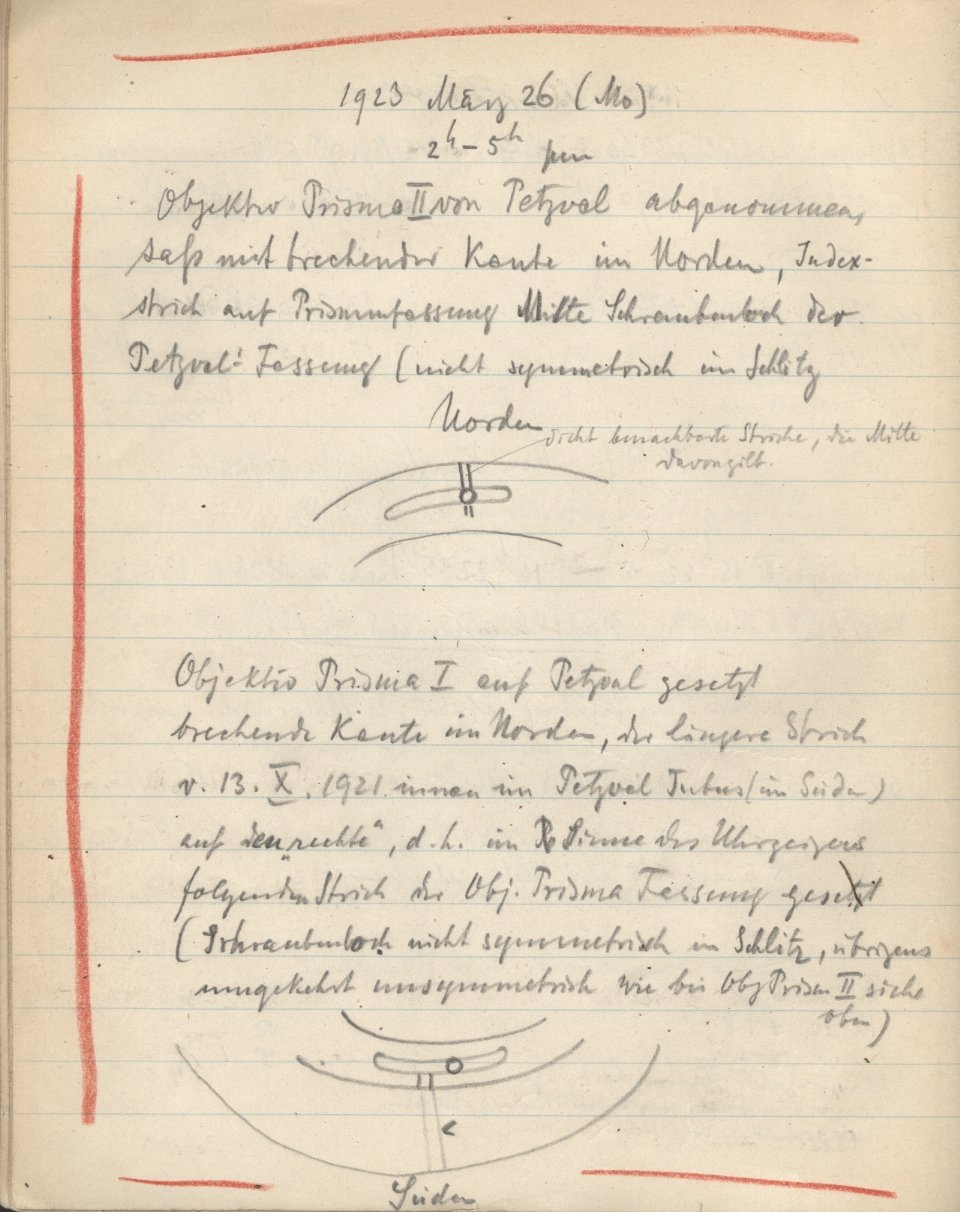 1923 März 26 (Mo)
2h – 5h pm
Objektiv Prisma II von Petzval abgenommen,
saß mit brechender Kante im Norden, Index-
strich auf Prismenfassung Mitte Schraubenloch der
Petzval-Fassung (nicht symmetrisch im Schlitz
Norden
dicht benachbarte Striche, die Mitte
davon gilt.
Objektiv Prisma I auf Petzval gesetzt
brechende Kante im Norden, der längere Strich
v. 13. X. 1921 innen im Petzval Tubus (im Süden)
auf den „rechten“, d.h. im Sinne des Uhrzeigers
folgenden Strich der Obj. Prisma Fassung gesetzt
(Schraubenloch nicht symmetrisch im Schlitz, übrigens
umgekehrt unsymmetrisch wie bei Obj Prism II siehe
oben)
Süden